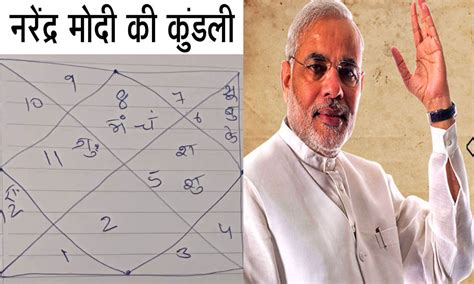 नरेंद्र मोदी की कुंडली
9
10 8 7 सू
मं चं ६ बु
के
11 गु. श
5 शु
रा
12 2 4
1 3